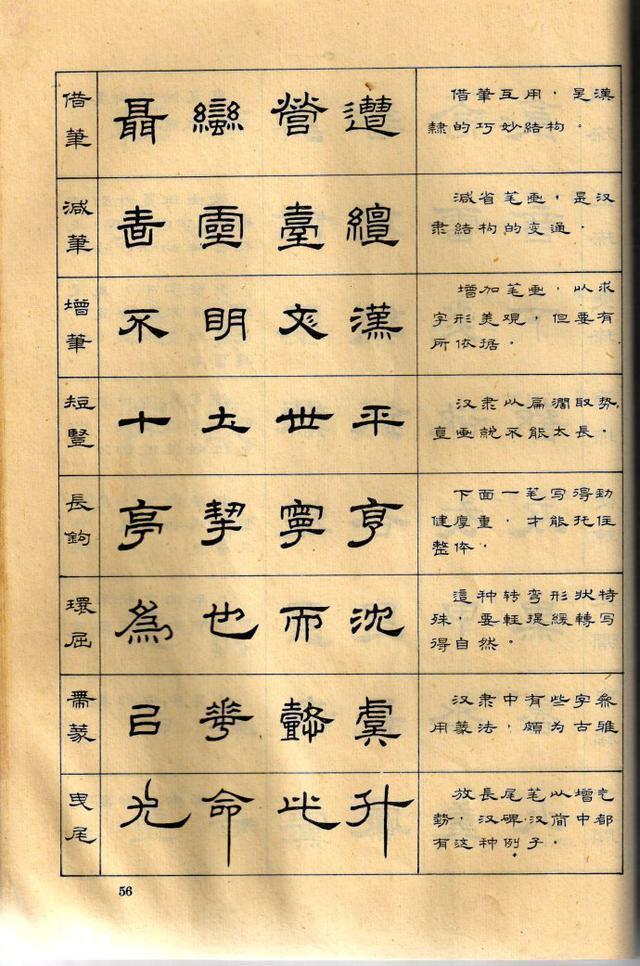 借筆
聶 蠻 營 遭
借筆互用，是漢
隸的巧妙結构．
減筆
靈 臺 繵
減省笔画，是汉
隶結构的变通．
增筆
不 明 文 漢
增加笔画，以求
字形美覌，但要有
所依据．
短豎
十 土 世 平
汉隶以扁濶取势，
直画就不能太長．
長鉤
亭 挈 寧 亨
下面一笔写得勁
健厚重，才能托住
整体．
環屈
為 也 而 沈
這种转弯形狀特
殊，要輕提緩轉写
得自然．
帶篆
己 華 懿 虞
汉隶中有些字参
用篆法，頗为古雅
曳尾
光 命 此 升
放長尾笔以增气
势，汉碑汉简中都
有这种例子．
56